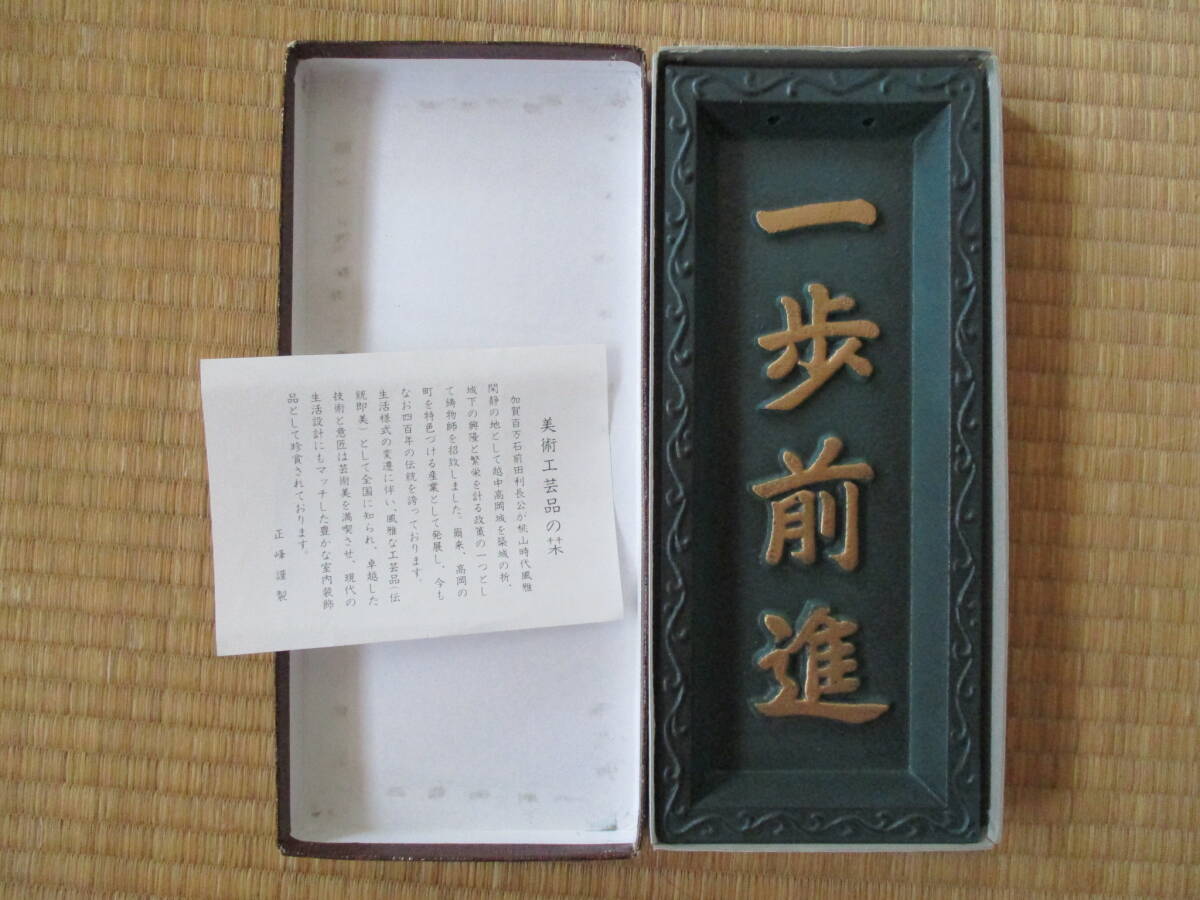 一歩前進
美術工芸品の栞
加賀百万石前田利長公が桃山時代風雅
閑静の地として越中高岡城を築城の折、
城下の興隆と繁栄を計る政策の一つとし
て鋳物師を招致しました。爾来、高岡の
町を特色づける産業として発展し、今も
なお四百年の伝統を誇っております。
生活様式の変遷に伴い、風雅な工芸品(伝
統即美)として全国に知られ、卓越した
技術と意匠は芸術美を満喫させ、現代の
生活設計にもマッチした豊かな室内装飾
品として珍賞されております。
正峰謹製